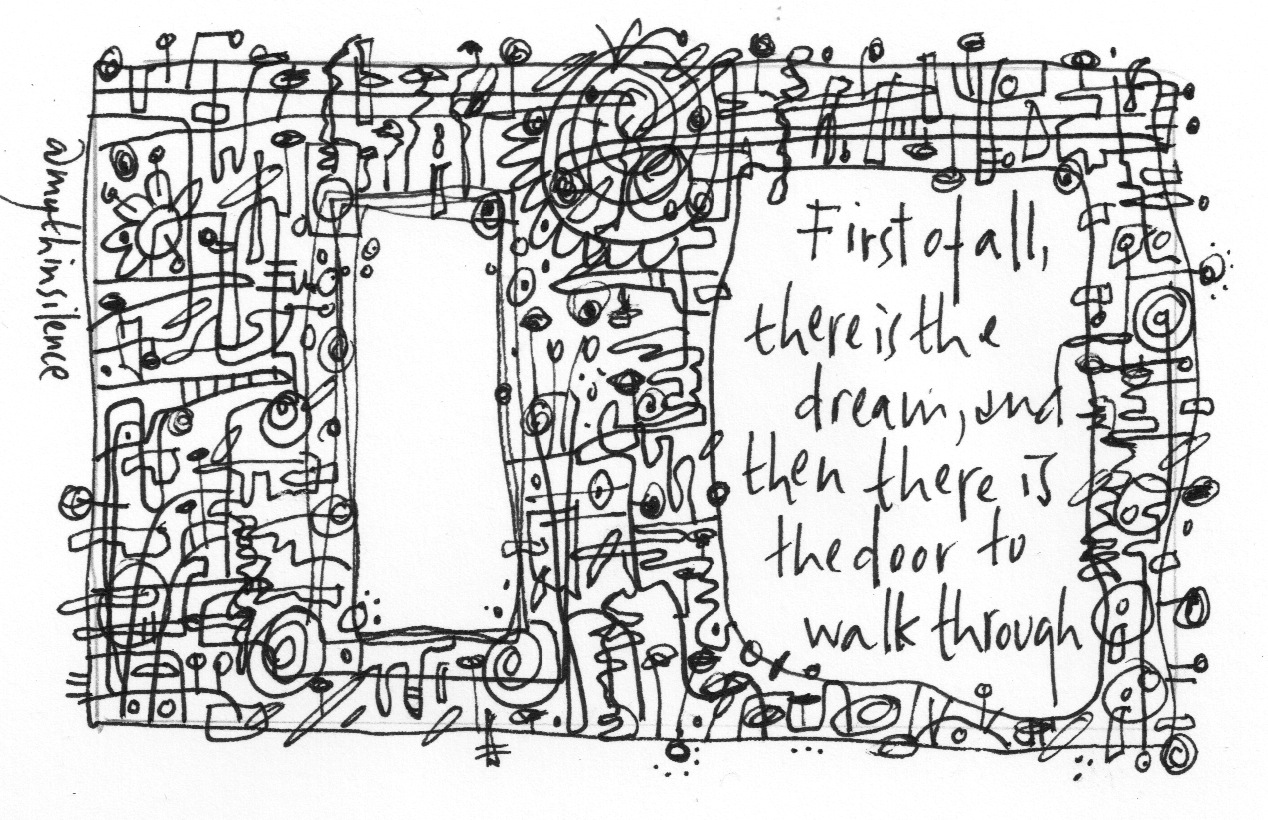 First of all,
there is the
dream, and
then there is
the door to
walk through
@mythinsilence